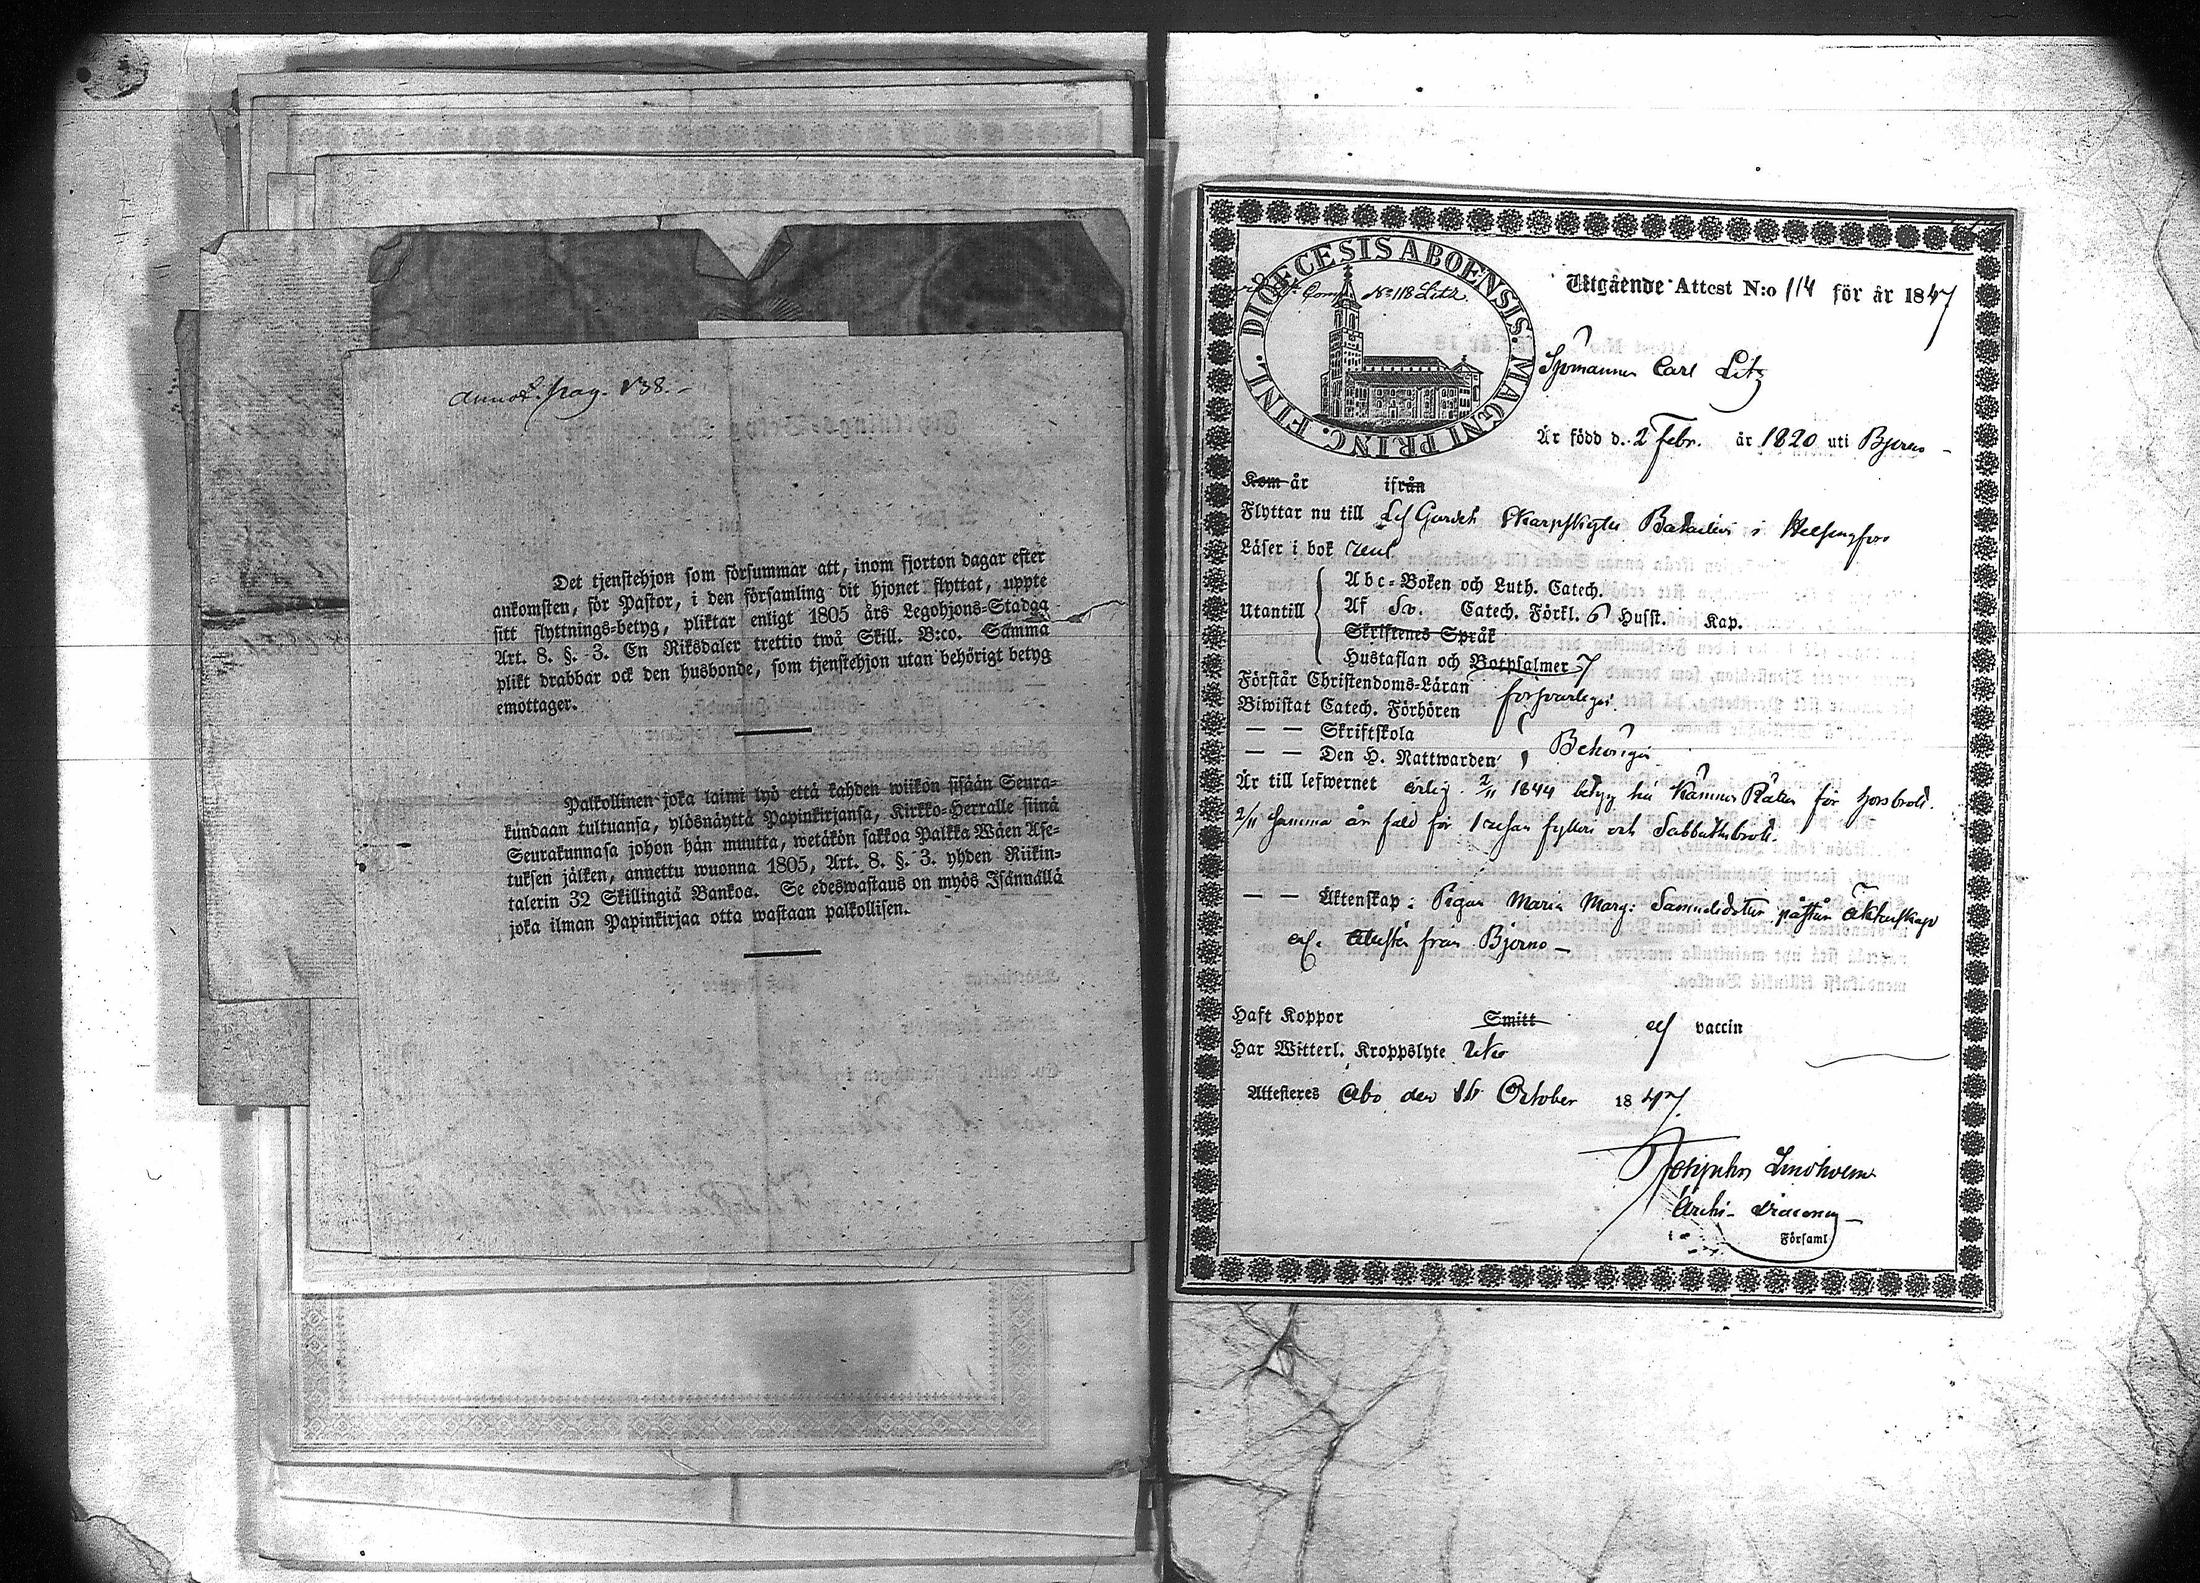 annot. pag. 138.-
Det tjenstehjon som försummar att, inom fjorton dagar efter
ankomsten, för Pastor, i den församling dit hjonet flyttat, uppte
sitt flyttnings-betyg, pliktar enligt 1805 års Legohjons-Stadga
Art. 8. §. 3. En Riksdaler trettio twå Skill. B:co. Samma
plikt drabbar ock den husbonde, som tjenstehjon utan behörigt betyg
emottager.
Palkollinen joka laimi lyö että kahden wiikon sisään Seura-
kundaan tultuansa, ylösnäyttä Papinkirjansa, Kirkko-Herralle siinä
Seurakunnasa johon hän muutta, wetäkön sakkoa Palkka Wäen Ase-
tuksen jälken, annettu wuonna 1805, Art. 8. §. 3. yhden Riikin-
talerin 32 Skillingiä Bankoa. Se edeswastaus on myös Isännällä
joka ilman Papinkirjaa otta wastaan palkollisen.
DIOECESIS ABOENSIS. MAGNI PRINC. FINL.
Comp. No 118 Litz.
Utgående Attest N:o 114 för år 1847
Sjömannen Carl Litz
Är född d. 2 Febr. år 1820 uti Bjerno -
Kom år ifrån
Flyttar nu till Lif Gardets Skarpskytte Bataillon i Helsingfors
Läser i bok rent
Utantill
Abc-Boken och Luth. Catech.
Af Sv. Catech. Förkl. 6 Husst. Kap.
Skriftenes Språk
Hustaflan och Botpsalmer 7
Förstår Christendoms-Läran försvarligen
Biwistat Catech. Förhören
— — Skriftskola
— — Den H. Nattwarden Behörigen
Är till lefwernet ärlig. 2/11 1844 betygn hu Kämners Rätten för brott.
2/11 samma år fäld för fylleri och Sabbathsbrott.
— — Äktenskap: Pigan Maria Marg: Samuelsdotter påstår äktenskap
enl. attest från Bjerno —
Haft Koppor Smitt ell vaccin
Har Witterl. Kroppslyte
Attesteres Åbo den 16 October 1847
Lindholm
Archi-Diaconus
i Församl